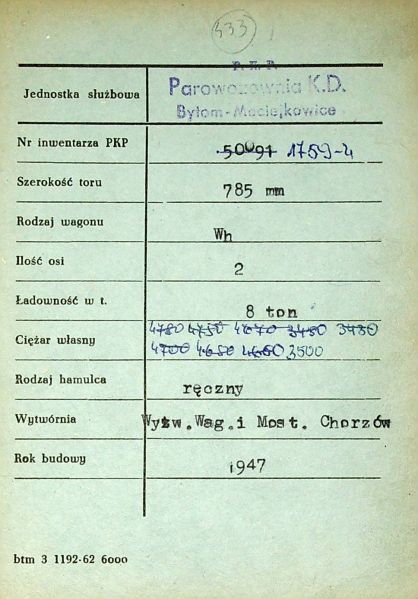 333
P.K.P.
Jednostka służbowa Parowozownia K.D.
Bytom-Maciejkowice
Nr inwentarza PKP 50091 1759-4
Szerokość toru 785 mm
Rodzaj wagonu Wh
Ilość osi 2
Ładowność w t. 8 ton
Ciężar własny 4780 4750 4670 3450 3480
4700 4680 4660 3500
Rodzaj hamulca ręczny
Wytwórnia Wytw.Wag.i Most. Chorzów
Rok budowy 1947
btm 3 1192-62 6000